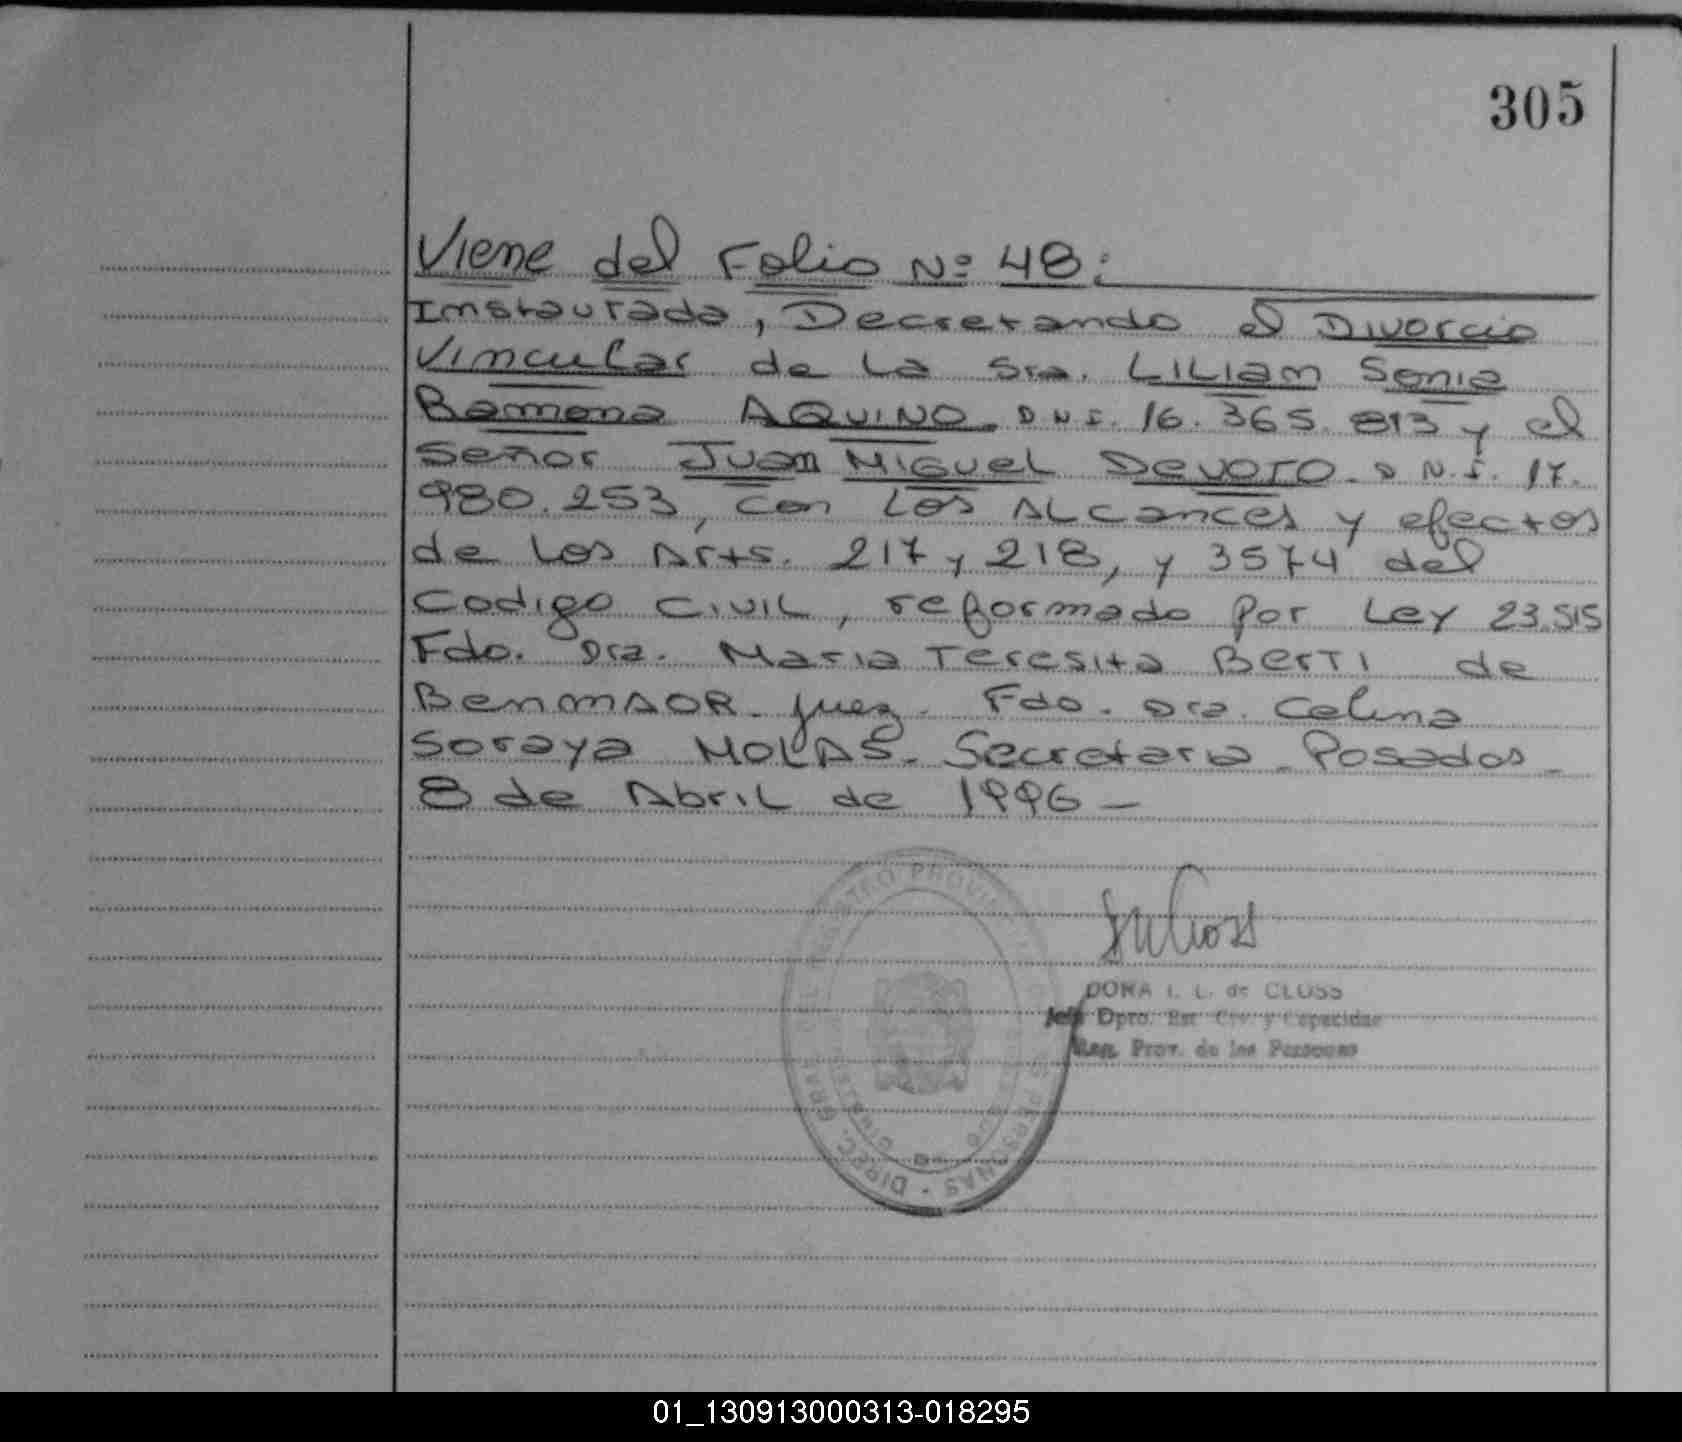 305
Viene del Folio Nº 48:
Instaurada, Decretando el Divorcio
Vincular de La Sra. LILIAM Sonia
Ramona AQUINO. D N I. 16.365.813 y el
Señor Juan MIGUEL DEVOTO. D N. I. 17.
980.253, con Los ALcances y efectos
de Los Arts. 217 y 218, y 3574 del
Codigo CIVIL, reformado por Ley 23.515
Fdo. Dra. Maria Teresita BERTI de
BenmAOR. juez. Fdo. Dra. Celina
Soraya MOLAS. Secretaria. Posadas.
8 de Abril de 1996 -
DIREC. GRAL. DEL REGISTRO PROVINCIAL DE LAS PERSONAS
DORA I. L. de CLOSS
Jefe Dpto. Est. Civ. y Capacidad
Reg. Prov. de las Personas
01_130913000313-018295